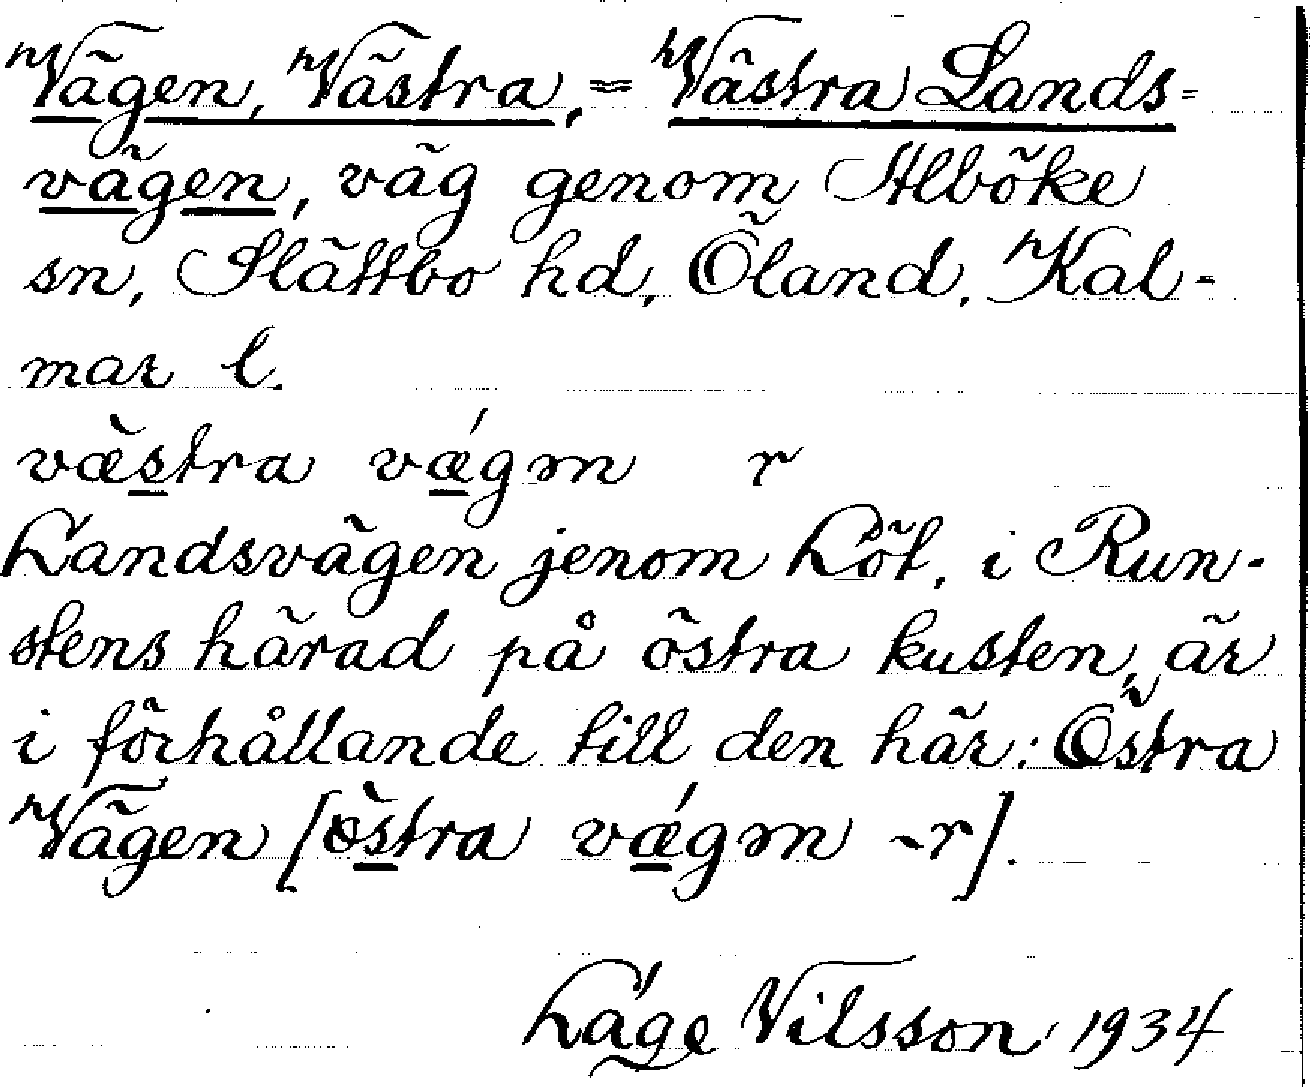 Vägen, Västra, = Västra Lands-
vägen, väg genom Alböke
sn, Slättbo hd, Öland, Kal-
mar l.
væ̀stra vǽgın r
Landsvägen jenom Löt, i Run-
stens härad på östra kusten, är
i förhållande till den här: Östra
Vägen [ö̀stra vǽgın ~r].
Låge Nilsson 1934